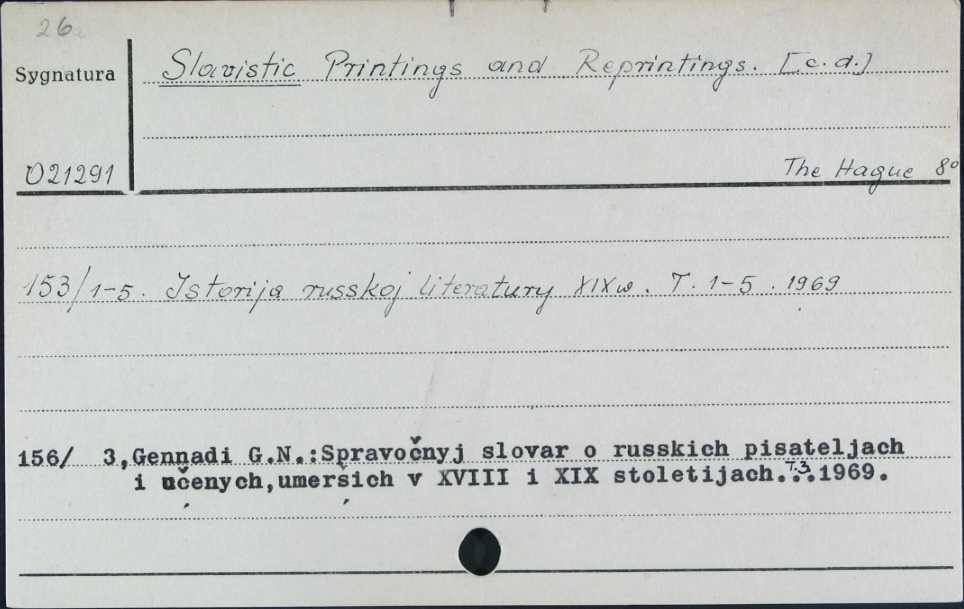 26
Sygnatura
Slavistic Printings and Reprintings. [c.d.]
O21291
The Hague 8º
153/1-5. Istorija russkoj literatury XIX w. T. 1-5. 1969
156/ 3,Gennadi G.N.:Spravočnyj slovar o russkich pisateljach
i učenych,umeršich v XVIII i XIX stoletijach... T.3 1969.